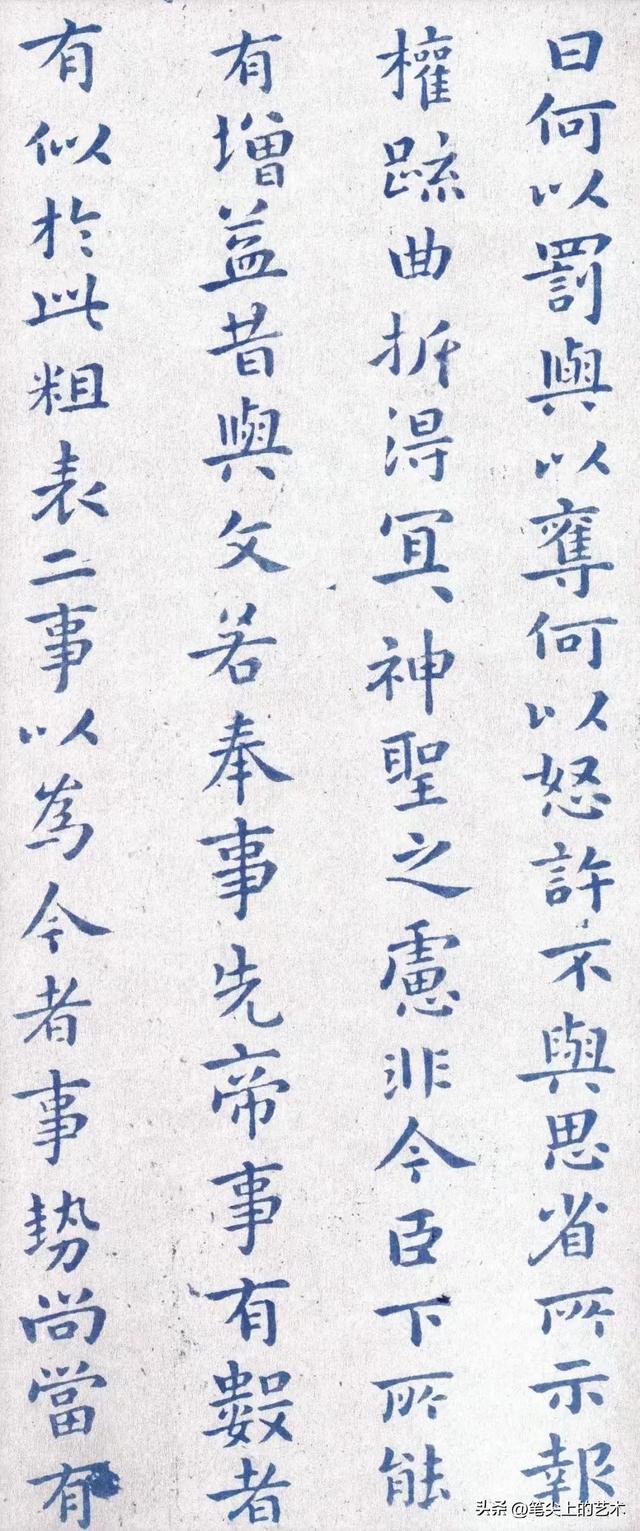 曰何以罰與以奪何以怒許不與思省所示報
權疏曲折得宜神聖之慮非今臣下所能
有增益昔與文若奉事先帝事有數者
有似於此粗表二事以為今者事勢尚當有
头条 @笔尖上的艺术